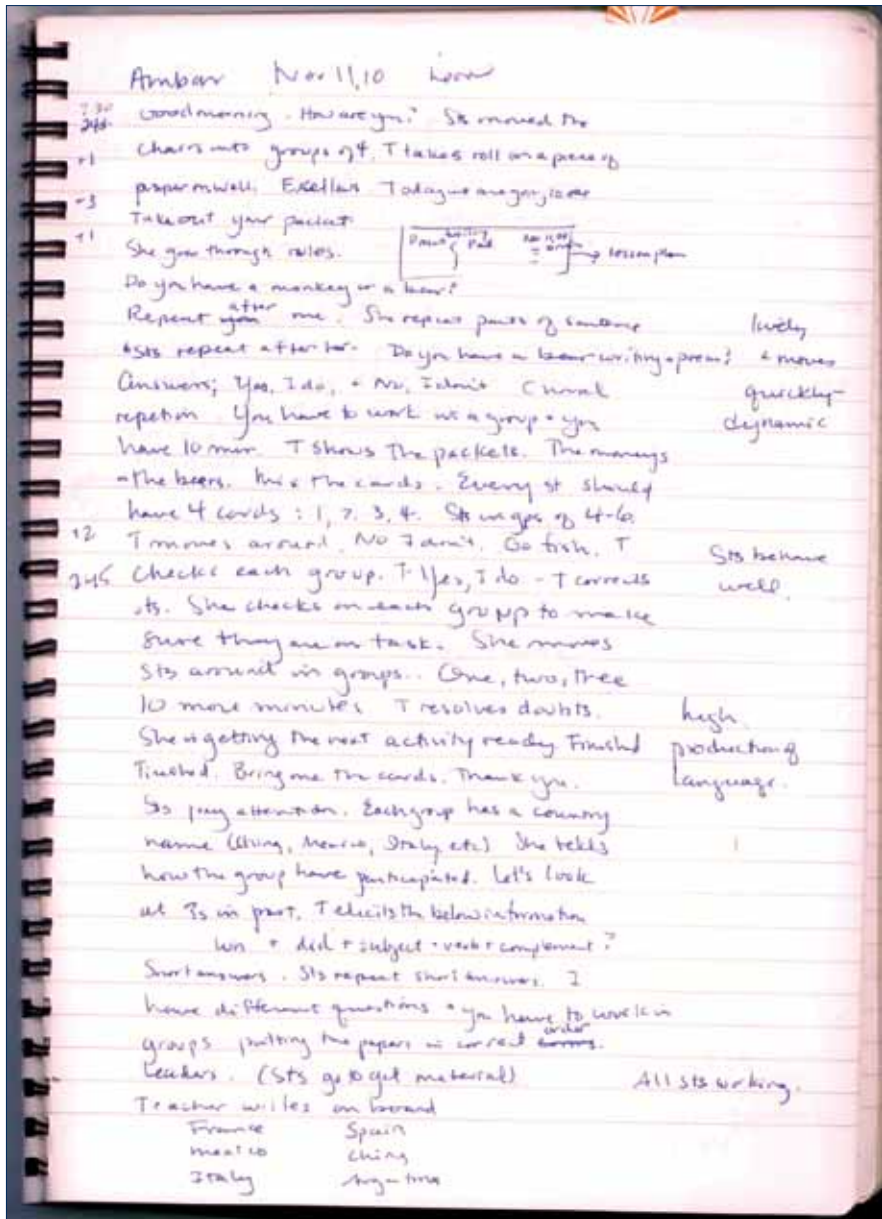 Ambar Nov 11, 10
Good morning. How are you? Sts moved the
chairs into groups of 4. T takes roll on a piece of
+1
paper on wall. Today
+3
Take out your packet
+1
She goes through rules. → lesson plan
Do you have a monkey or a bear?
Repeat after me. She repeat parts of sentence lively
+ sts repeat after her. Do you have a bear writing a poem? + moves
Answers; Yes, I do, + No, I don't Choral quickly-
repetion. You have to work in a group + you dynamic
have 10 min. T shows the packets. The
the bears. the cards. Every st should
have 4 cards: 1, 2, 3, 4. Sts in gps of 4-6.
+2
T moves around. No I don't. Go fish. T Sts behave
245 Checks each group. T Yes, I do - T corrects well.
sts. She checks on each group to make
sure they are on task. She moves
sts around in groups. One, two, three
10 more minutes. T resolves doubts. high
She is getting the next activity ready Finished production of
Finished. Bring me the cards. Thank you. language.
Sts pay attention. Each group has a country
name (China, Mexico, Italy etc) She tells
how the group have participated. Let's look
at ?s in past. T elicits the below information
Wh + did + subject + verb + complement?
Short answers. Sts repeat short answers. I
have different questions + you have to work in
groups putting the papers in correct order.
Leaders. (Sts go to get material) All sts working.
Teacher writes on board
France Spain
Mexico China
Italy Argentina